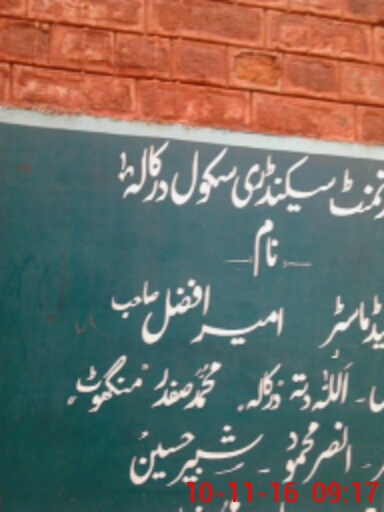 نمنٹ سیکنڈری سکول درکالہ
نام
یڈماسٹر امیر افضل صاحب
۔ اللہ دتہ درکالہ۔ محمد صفدر منگھوٹ۔
۔ انصر محمود ۔ شبیر حسین
10-11-16 09:17